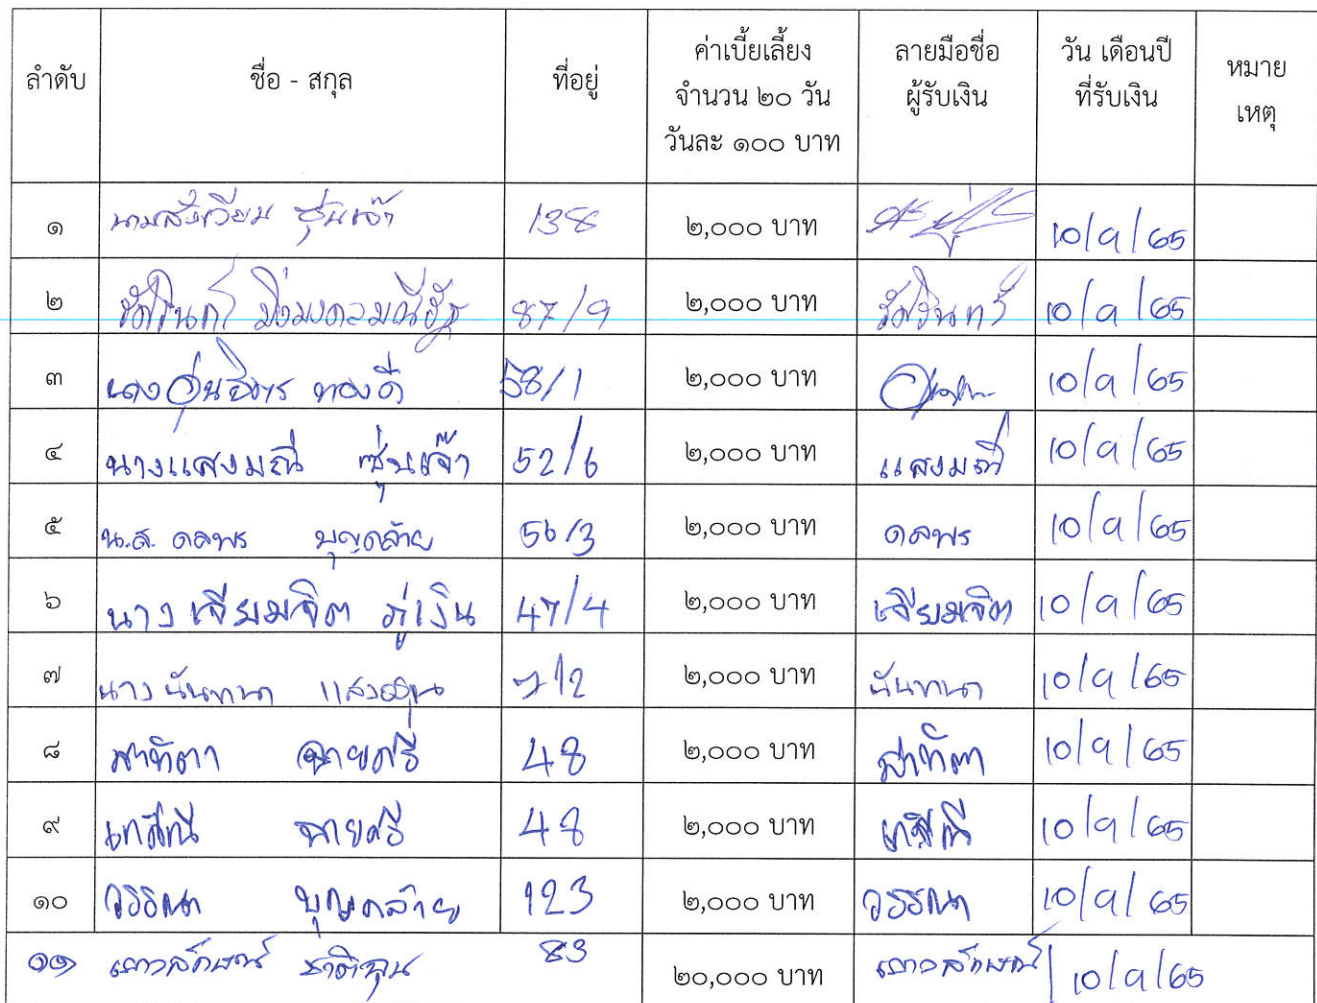 ลำดับ ชื่อ - สกุล ที่อยู่ ค่าเบี้ยเลี้ยง จำนวน ๒๐ วัน วันละ ๑๐๐ บาท ลายมือชื่อ ผู้รับเงิน วัน เดือนปี ที่รับเงิน หมาย เหตุ
๑ 138 ๒,๐๐๐ บาท 10/9/65
๒ 87/9 ๒,๐๐๐ บาท 10/9/65
๓ นาง ทองดี 58/1 ๒,๐๐๐ บาท 10/9/65
๔ นางแสงมณี ซุ่นเจ๊า 52/6 ๒,๐๐๐ บาท แสงมณี 10/9/65
๕ น.ส. ดลพร บุญคล้าย 56/3 ๒,๐๐๐ บาท ดลพร 10/9/65
๖ นาง เจียมจิต ภู่เงิน 47/4 ๒,๐๐๐ บาท เจียมจิต 10/9/65
๗ นาง นันทนา ๒,๐๐๐ บาท นันทนา 10/9/65
๘ สาทิตา ฉายศรี 48 ๒,๐๐๐ บาท สาทิตา 10/9/65
๙ ฉายศรี 48 ๒,๐๐๐ บาท 10/9/65
๑๐ วรรณา บุญคล้าย 123 ๒,๐๐๐ บาท วรรณา 10/9/65
๑๑ เยาวลักษณ์ 83 ๒๐,๐๐๐ บาท เยาวลักษณ์ 10/9/65